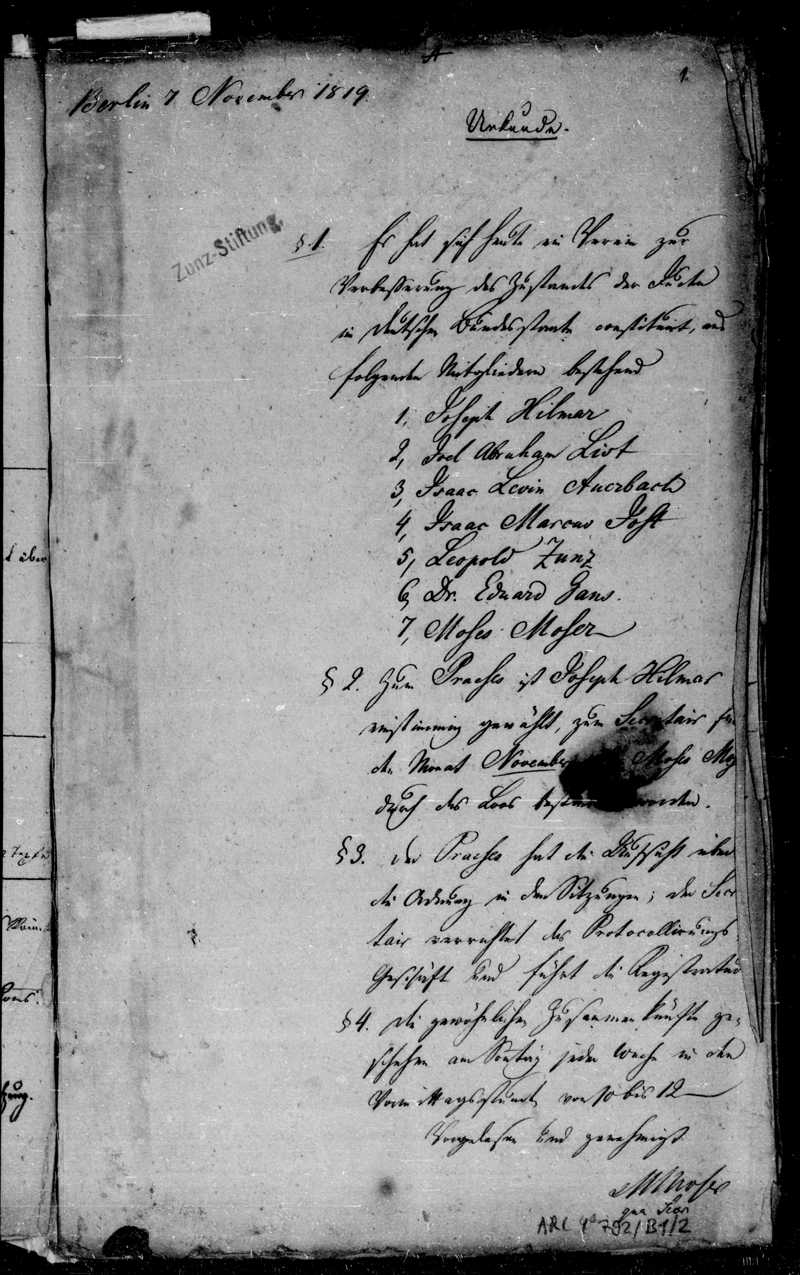 A
1.
Berlin 7 November 1819
Urkunde.
Zunz-Stiftung.
§.1. Es hat sich heute ein Verein zur
Verbesserung des Zustandes der Juden
in deutschen Bundesstaate constituirt, aus
folgenden Mitgliedern bestehend
1, Joseph Hilmar
2, Joel Abraham List
3, Isaac Levin Auerbach
4, Isaac Marcus Jost
5, Leopold Zunz
6, Dr. Eduard Gans.
7, Moses Moser
§ 2. Zum Praeses ist Joseph Hilmar
einstimmig gewählt, zum Secretair für
den Monat November Moses Mos
durch das Loos bestimmt worden.
§ 3. Der Praeses hat die Aufsicht über
die Ordnung in den Sitzungen; der Secre
tair verrichtet das Protocollirungs
Geschäft und führt die Registratur
§ 4. Die gewöhnlichen Zusammenkünfte ge-
schehen am Sontag jeder Woche in den
Vormittagsstunden von 10 bis 12
Vorgelesen und genehmigt
M Moser
qua Secr
ARC 4° 792/B1/2
t über